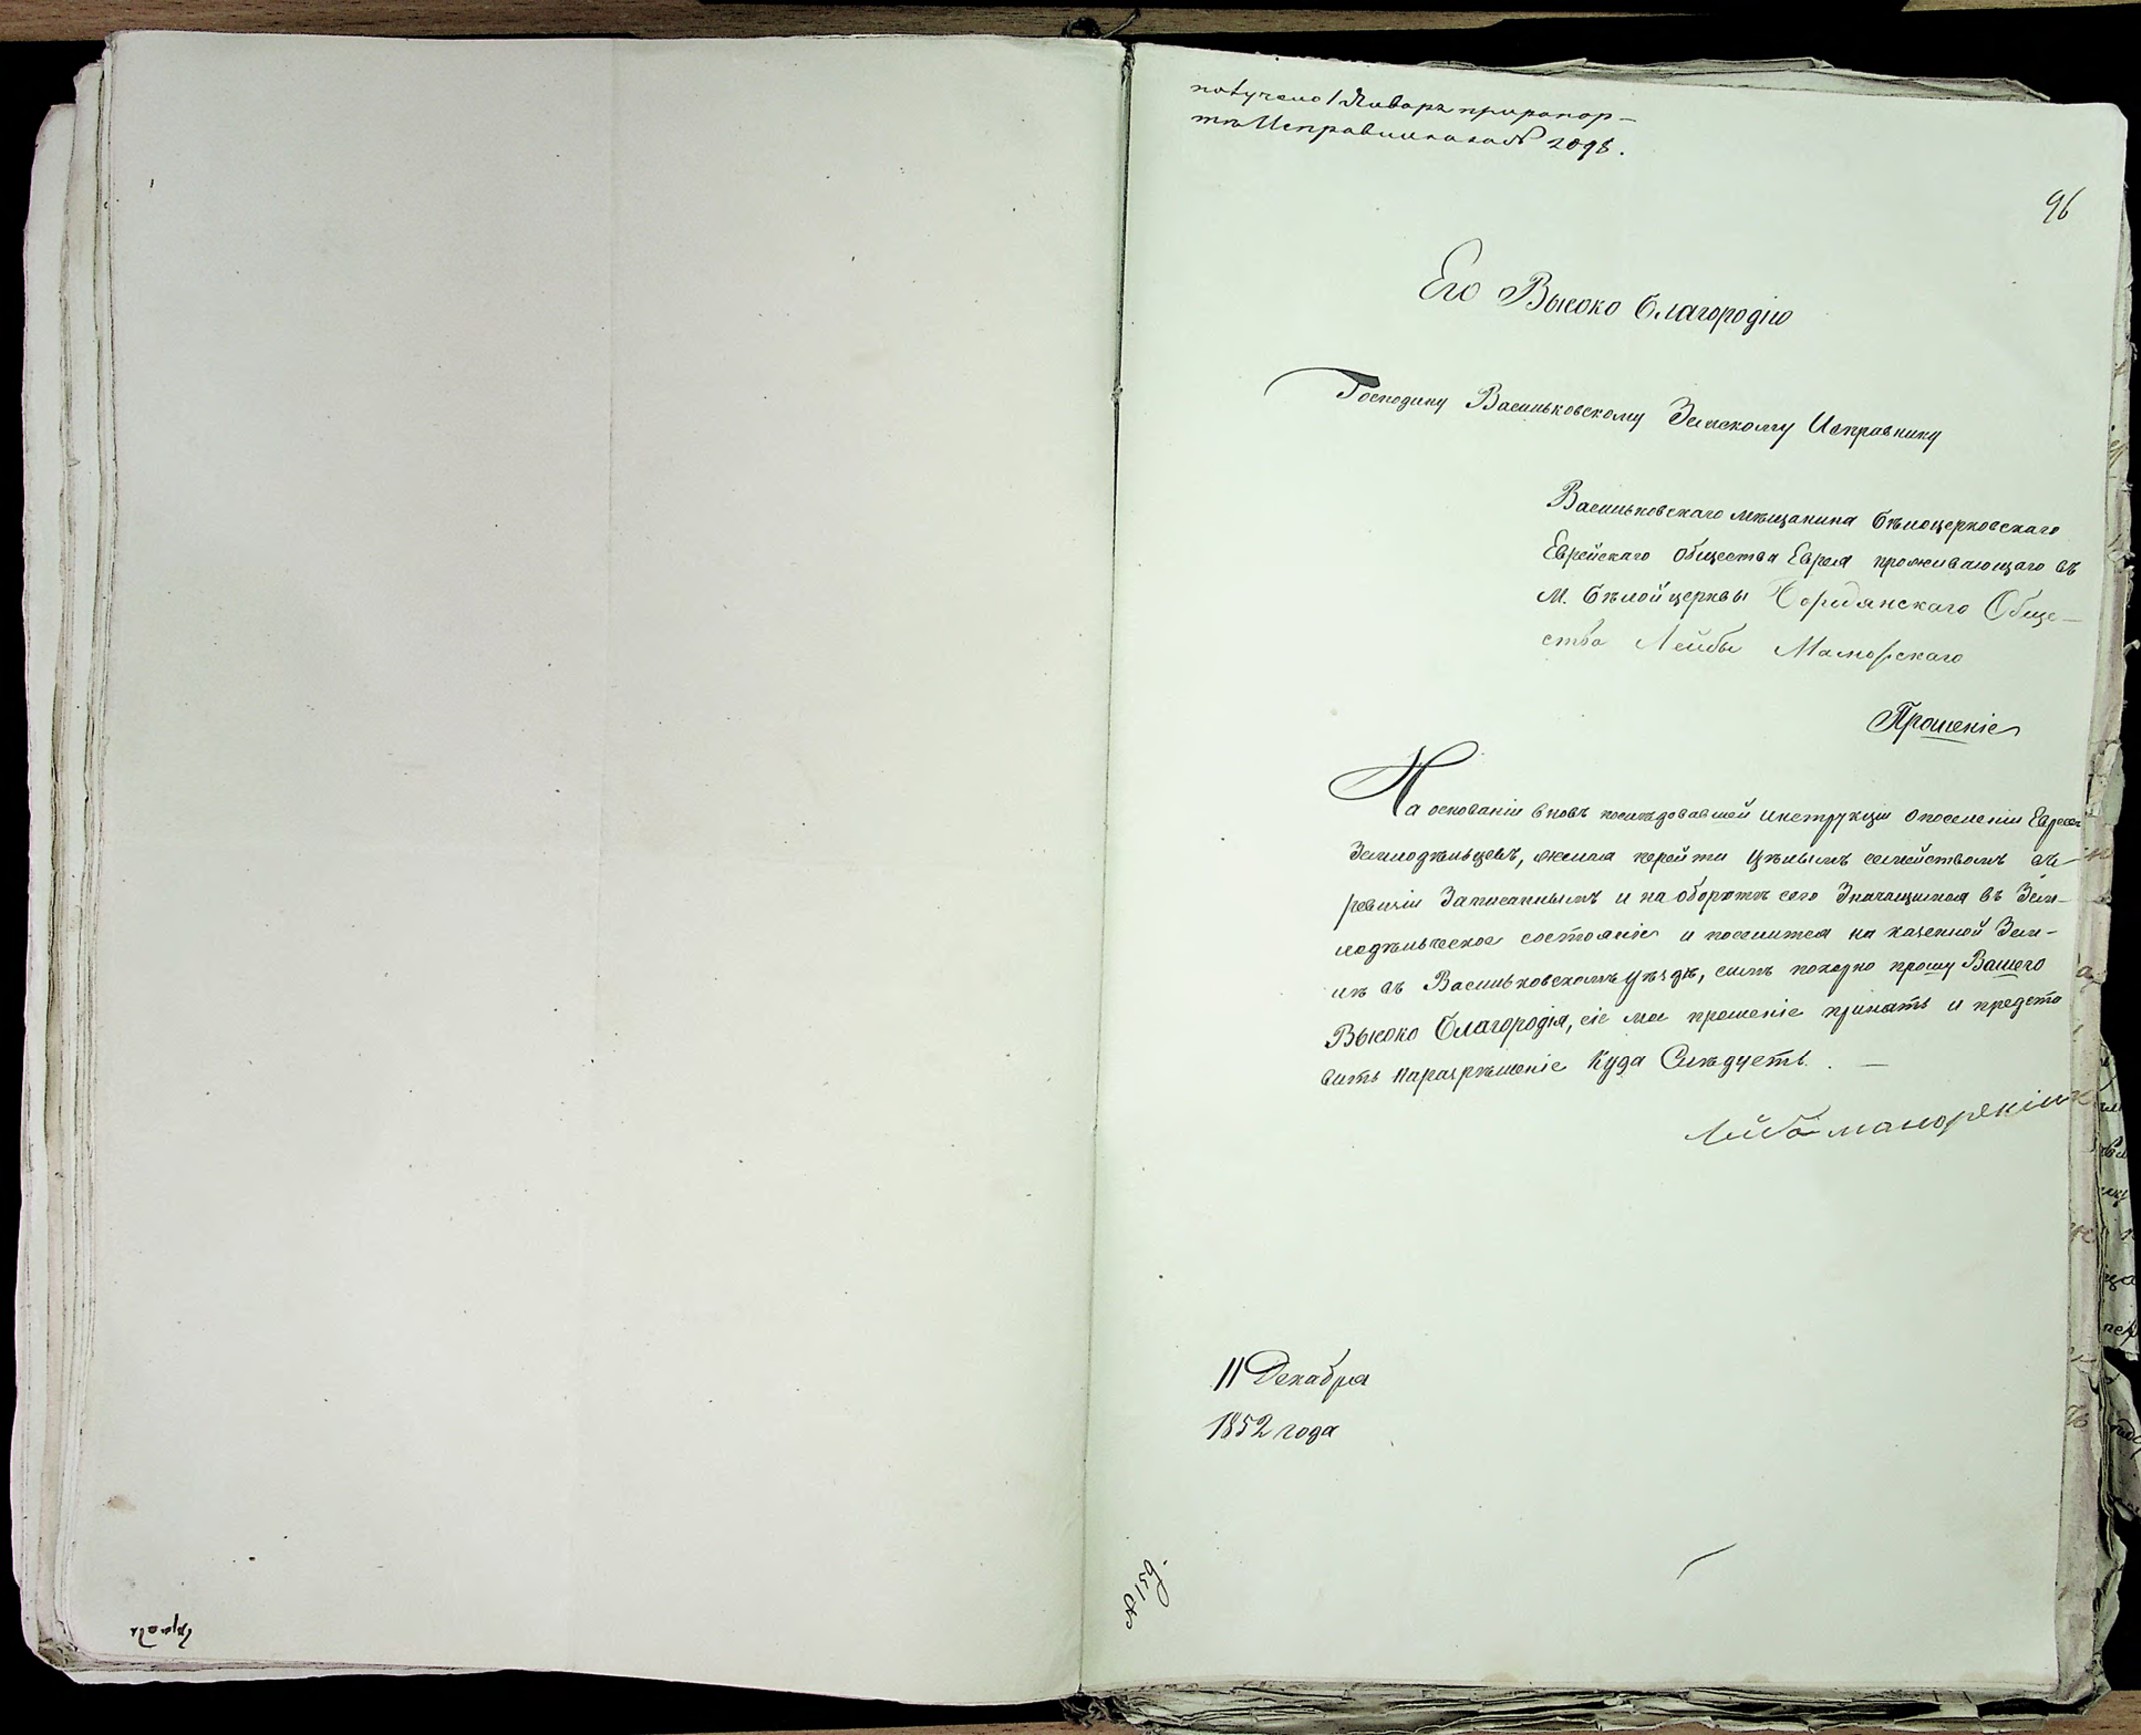 получено 1 Января при рапор-
тѣ Исправника за № 2098.
96
Его Высоко Благородію
Господину Васильковскому Земскому Исправнику
Васильковскаго мѣщанина Бѣлоцерковскаго
Еврейскаго Общества Еврея проживающаго въ
М. Бѣлой церквы Обще-
ства Лейбы
Прошеніе
На основаніи вновь послѣдовавшей инструкціи о поселеніи Евреевъ
Земледѣльцевъ, желая перейти цѣлымъ семействомъ въ
ревизіи Записаннымъ и на оборотѣ сего Значащимся въ Зем-
ледѣльческое состояніе и поселится на казенной Зем-
лѣ въ Васильковскомъ уѣздѣ, симъ покорно прошу Вашего
Высоко Благородія, сіе мое прошеніе принять и предста
вить на разрѣшеніе Куда Слѣдуетъ. —
Лейба
11 Декабря
1852 года